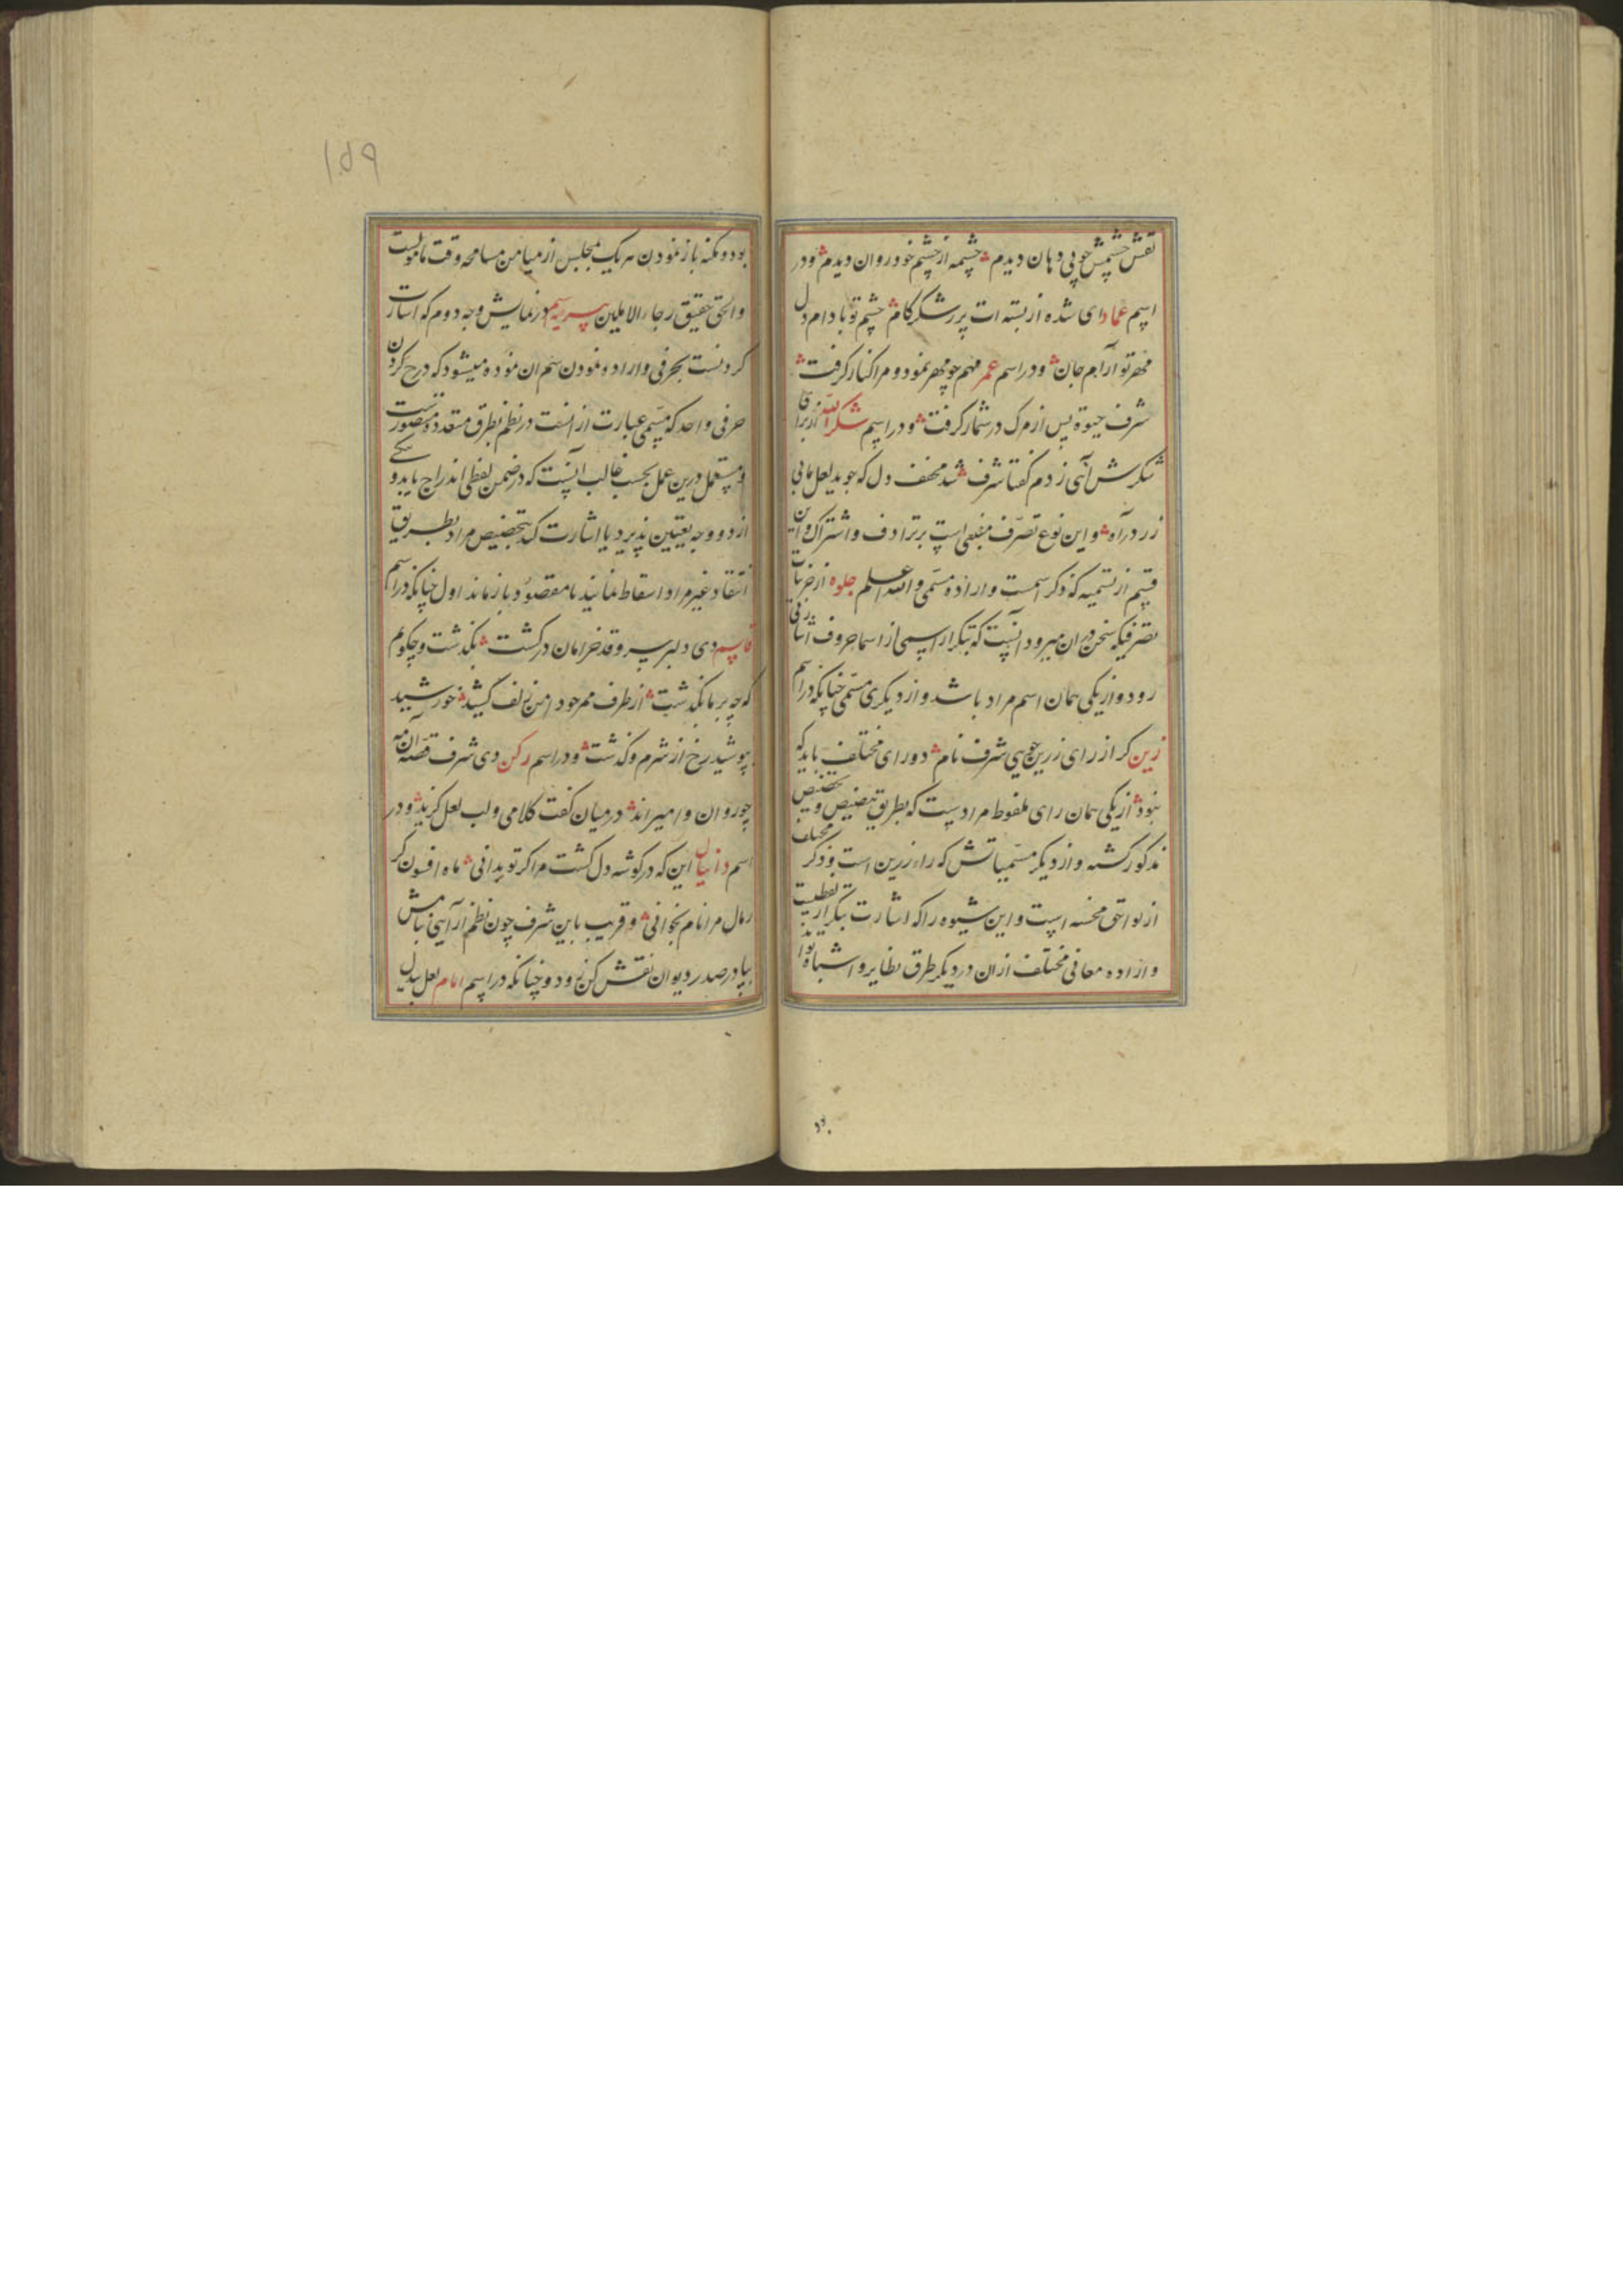 نقش چشمش چو پی دهان دیدم چشمه از چشم خود روان دیدم ودر
اسم عماد ای شده از بسته ات پر شکر کام چشم تو بادام دل
مهر تو آرام جان ودر اسم عمر مهم چو مهر نمود و مرا کنار گرفت
شرف حیوة پس از مرک در شمار گرفت ودر اسم شکرالله
شکرش آنی زدم گفتا شرف شد مخفف دل که جوید لعل مانی
زر درآه واین نوع تصرف مبتنی است بر ترادف واشتراک واین
قسم از تسمیه که ذکر اسمست واراده مسمی والله اعلم جلوه از جزئیات
تصرفیکه سخن دران میرود آنست که بتکرار اسمی از اسما حروف اشارتی
رود واز یکی همان اسم مراد باشد واز دیگری مسمی چنانکه در اسم
زین کر از رای زرین جویی شرف نام دو رای مختلف باید که
نبود از یکی همان رای ملفوظ مرادست که بطریق تنصیص وتخصیص
مذکور کشته واز دیگر مسمیاتش که راء زرین است وذکر مختلف
از لواحق محسنه است واین شیوه را که اشارت بتکرار لفظیست
واراده معانی مختلف ازان در دیگر طرق نظایر واشباه
۱۵۹
بود ومکنه باز نمودن هر یک مجلس از میامن مسامحه وقت مامولست
والحق حقیق رجاء الاملین پیرایه سیم در نمایش وجه دوم که اشارت
کردنست بحرفی واراده نمودن هم ان نموده میشود که درج کردن
حرفی واحد که مسمی عبارت از انست در نظم بطرق متعدده متصورست
ومستعمل درین عمل بحسب غالب آنست که در ضمن لفظی اندراج یابد و
از دو وجه بتعیین پذیرد یا اشارت کند بتخصیص مراد بطریق
انتقاد غیر مراد اسقاط نمانید تا مقصود باز ماند اول چنانکه در اسم
قاسم دی دلبر سرو قد خرامان در کشت بگذشت وچگویم
که چه بر ما بگذشت از طرف ممر خود دامن زلف کشید خورشید
بپوشید رخ از شرم وگذشت ودر اسم رکن دی شرف قصه آن مه
چو روان وامیراند در میان گفت کلامی ولب لعل گزید ودر
اسم دانیال این که در گوشه دل گشت مرا گر تو بدانی ماه افسون گر
رمال مرا نام بخوانی وقریب باین شرف چون نظم آرایی بنامش
بیا در صدر دیوان نقش کن زود وچنانکه در اسم امام لعل بیدل